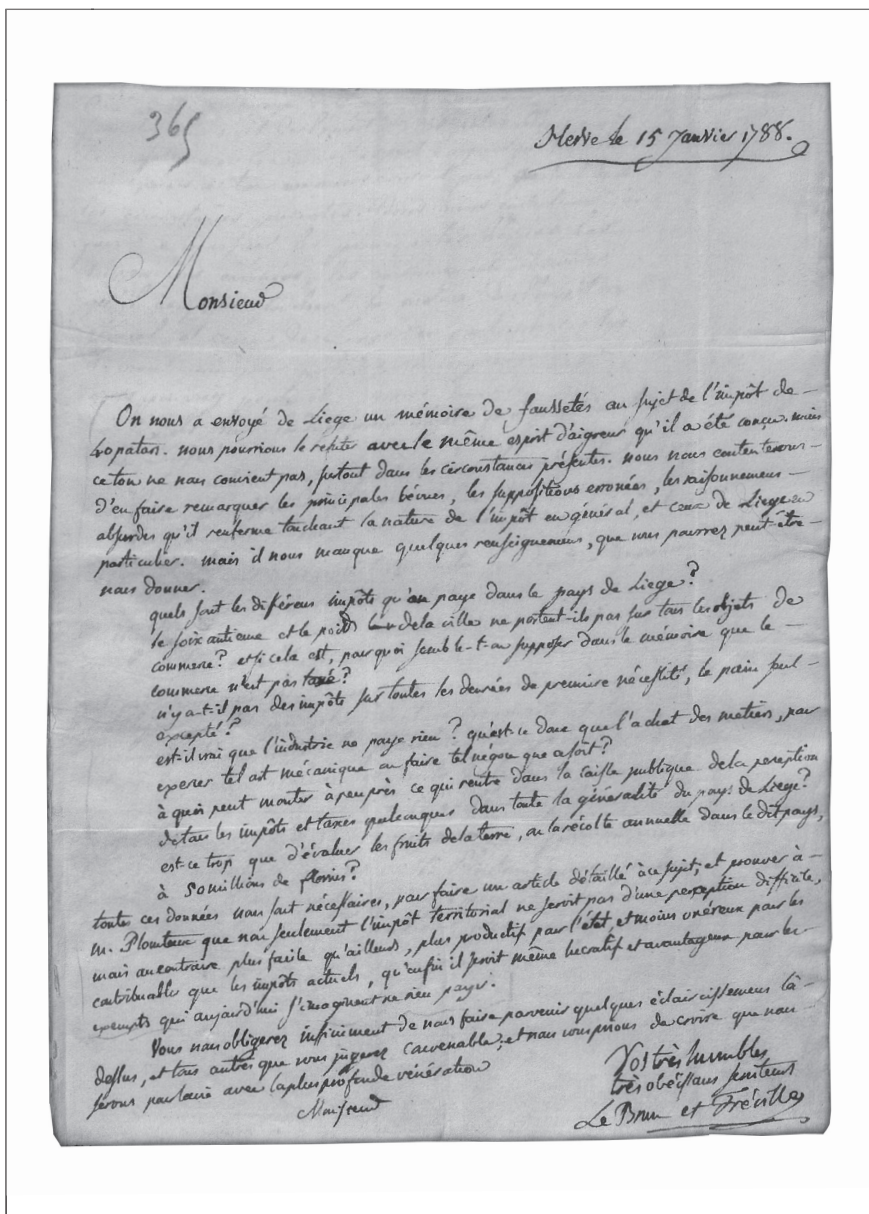 365
Herve le 15 Janvier 1788.
Monsieur
On nous a envoyé de Liege un mémoire de faussetés au sujet de l'impôt de
40 patars. nous pourrions le refuter avec le même esprit d'aigreur qu'il a été conçu. mais
ce ton ne nous convient pas, surtout dans les circonstances présentes. nous nous contenterons
d'en faire remarquer les principales bévues, les suppositions erronées, les raisonnemens
absurdes qu'il renferme touchant la nature de l'impôt en général, et ceux de Liege en
particulier. mais il nous manque quelques renseignemens, que vous pourrez peut-être
nous donner.
quels sont les différens impôts qu'on paye dans le pays de Liege?
le soixantieme et le poids de la ville ne portent-ils pas sur tous les objets de
commerce? et si cela est, pourquoi semble-t-on supposer dans le mémoire que le
commerce n'est pas taxé?
n'y a-t-il pas des impôts sur toutes les denrées de premiere nécessité, le pain seul
excepté?
est-il vrai que l'industrie ne paye rien? qu'est-ce donc que l'achat des metiers, pour
exercer tel art mécanique ou faire tel négoce que ce soit?
à quoi peut monter à peu près ce qui rentre dans la caisse publique de la perception
de tous les impôts et taxes quelconques dans toute la généralité du pays de Liege?
est-ce trop que d'évaluer les fruits de la terre, ou la récolte annuelle dans le dit pays,
à 50 millions de florins?
toutes ces données nous sont nécessaires, pour faire un article détaillé à ce sujet, et prouver à
m. Plomteux que non seulement l'impôt territorial ne seroit pas d'une perception difficile,
mais au contraire plus facile qu'ailleurs, plus productif pour l'état, et moins onéreux pour les
contribuables que les impôts actuels, qu'enfin il seroit même lucratif et avantageux pour les
exempts qui aujourd'hui s'imaginent ne rien payer.
Vous nous obligerez infiniment de nous faire parvenir quelques éclaircissemens là-
dessus, et tous autres que vous jugerez convenable, et nous vous prions de croire que nous
serons pour la vie avec la plus profonde vénération
Monsieur
Vos très humbles
très obéissans serviteurs
Le Brun et Fréville